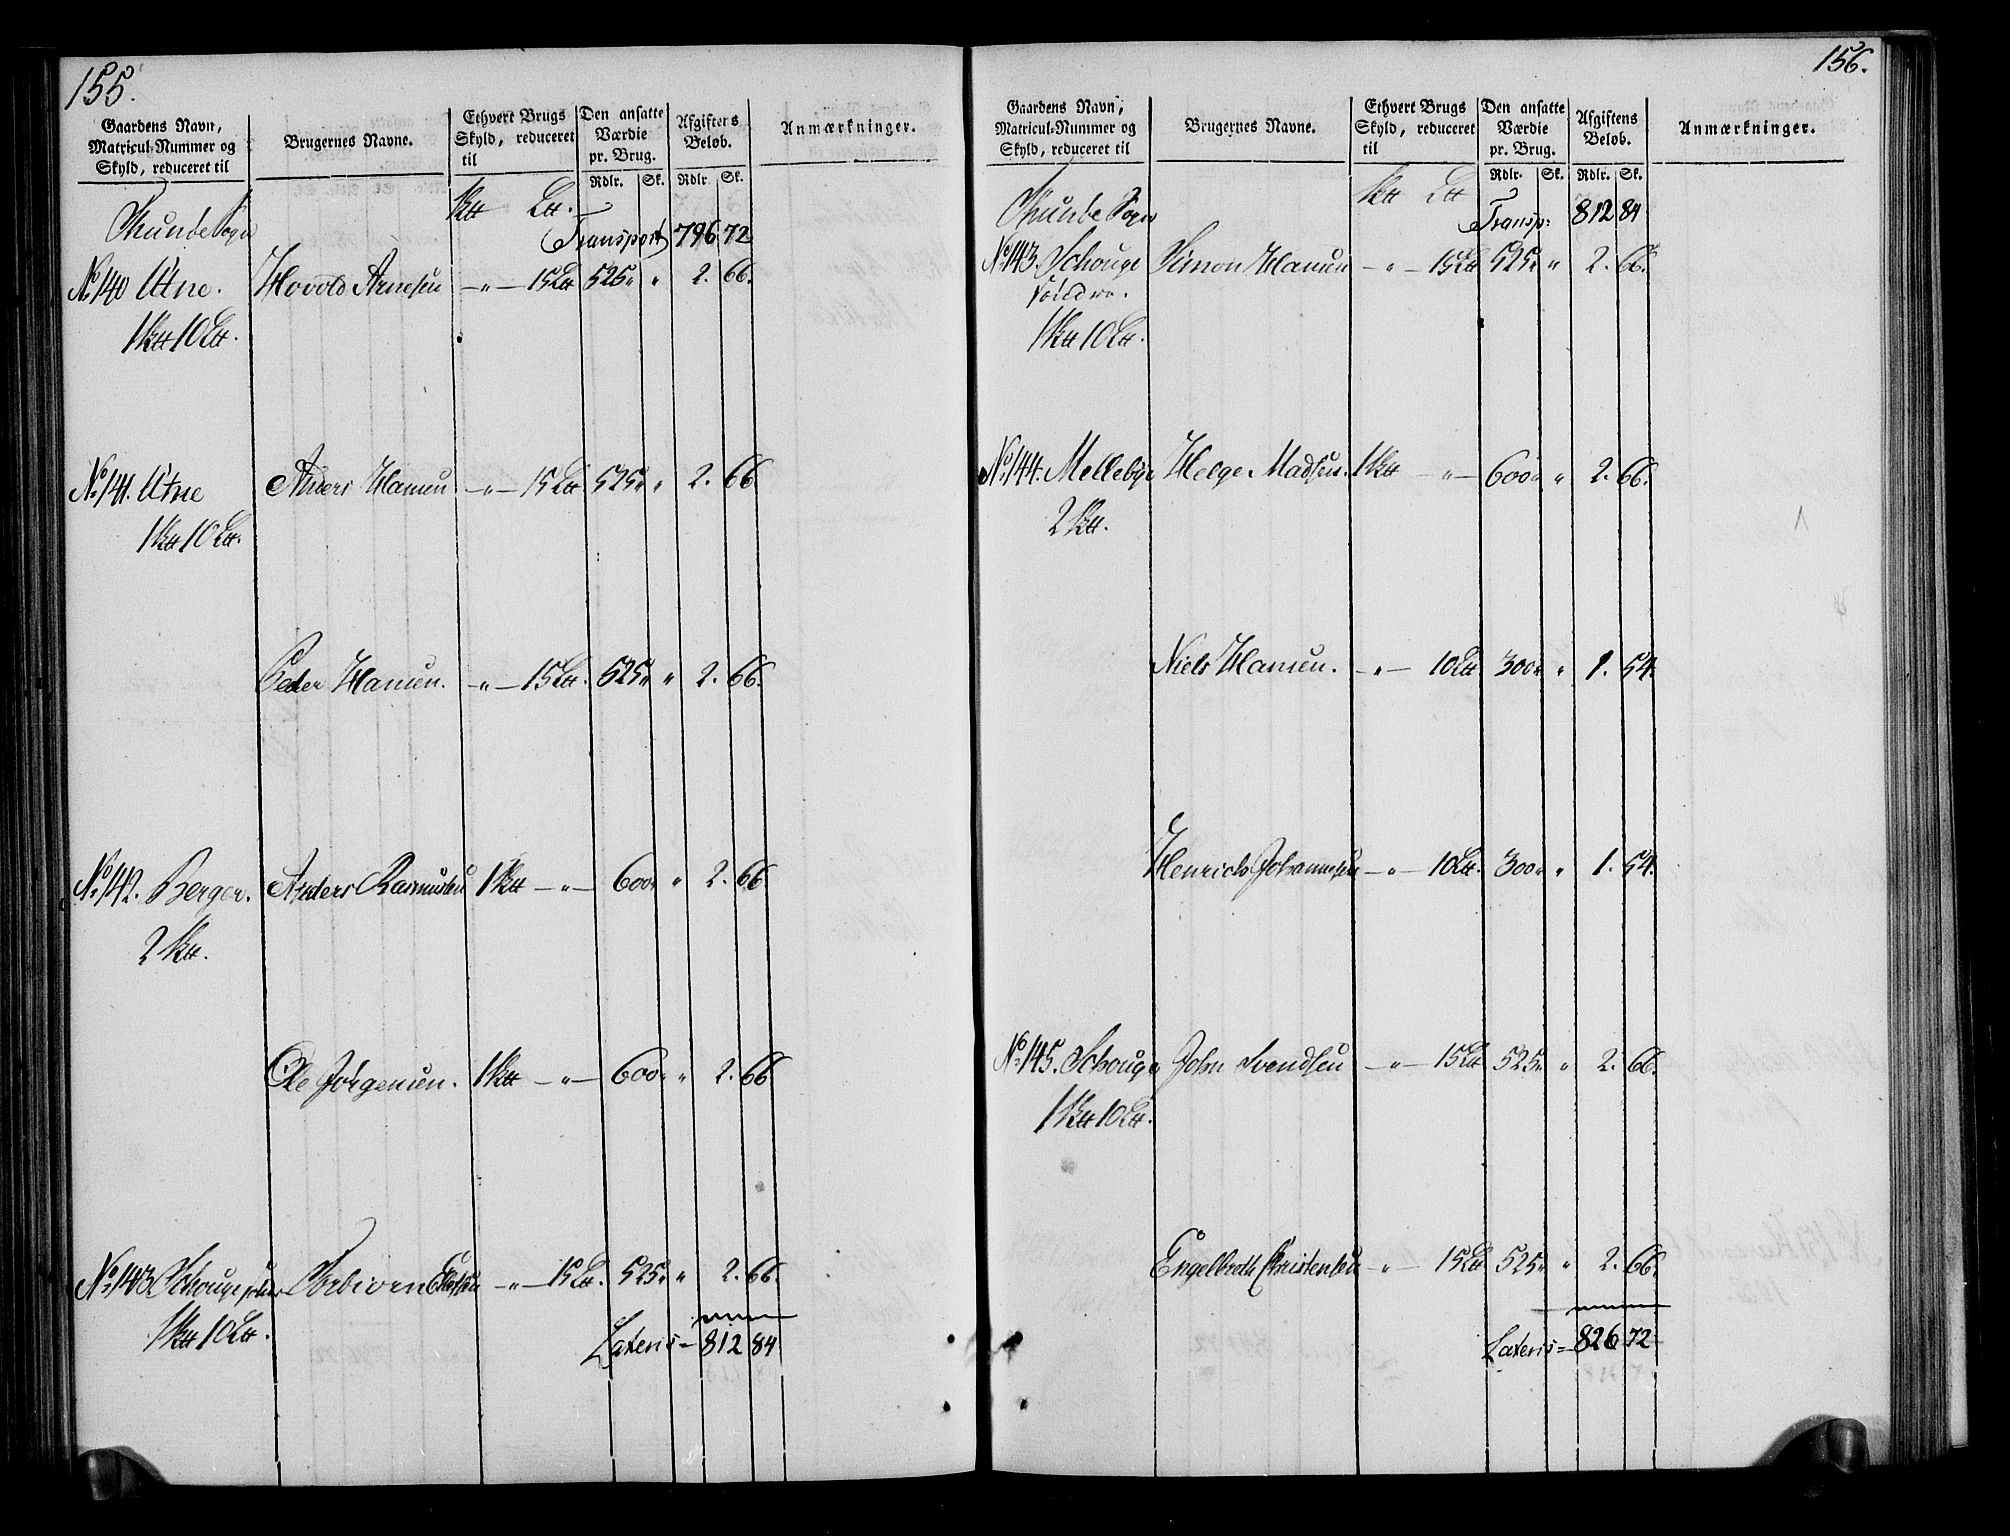 155.
Gaardens Navn, Matricul-Nummer og Skyld, reduceret til | Brugernes Navne. | Ethvert Brugs Skyld, reduceret til | Den ansatte Værdie pr. Brug. Rdlr. Sk. | Afgiftens Beløb. Rdlr. Sk. | Anmærkninger.
Thune Sogn Transport 796 72
No. 140 Utne. Hovold Arnesen — " — 15 L 525 " " 2. 66.
1 10
No. 141. Utne Anders Hansen — " — 15 525 " " 2. 66
1 10
Peder Hansen. — " — 15 525 " " 2. 66.
No. 142. Berger. Anders Rasmussen 1 — " — 600 " " 2. 66
2
Ole Jørgensen. 1 — " — 600 " " 2. 66
No. 143 Schouge — " — 15 525 " " 2. 66.
1 10
Lateris = 812 84
156.
Gaardens Navn, Matricul-Nummer og Skyld, reduceret til | Brugernes Navne. | Ethvert Brugs Skyld, reduceret til | Den ansatte Værdie pr. Brug. Rdlr. Sk. | Afgiftens Beløb. Rdlr. Sk. | Anmærkninger.
Thune Sogn Transp: 812 84
No. 143. Schouge Simon Hansen — " — 15 525 " " 2. 66.
1 10
No. 144. Mellebye Helge Madsen. 1 — " — 600 " " 2. 66.
2
Niels Hansen. — " — 10 300 " " 1. 54.
Henrich Johannesen — " — 10 300 " " 1. 54.
No. 145. Schouge John Svendsen — " — 15 525 " " 2. 66.
1 10
Engelbreth Christensen — " — 15 525 " " 2. 66.
Lateris = 826 72